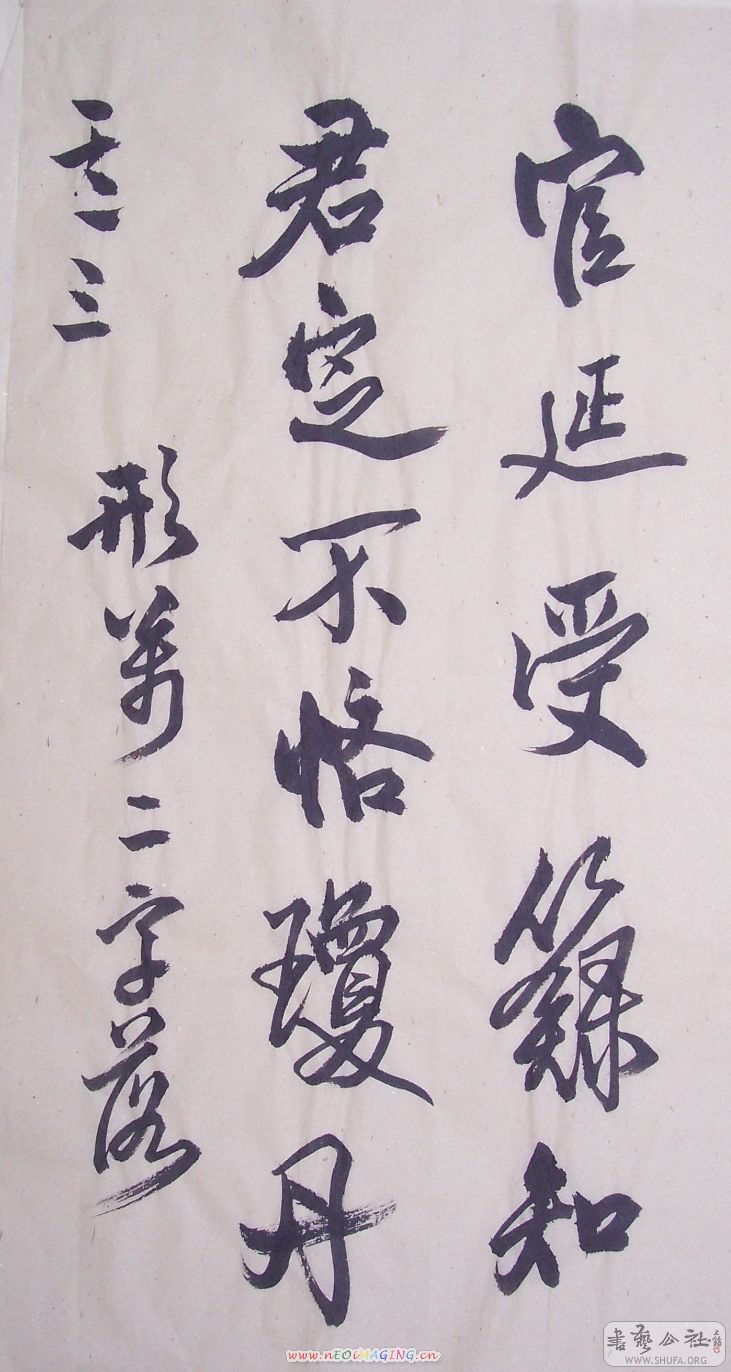 官延受籙知
君定不悋瓊丹
三 形萬二字落
www.nEOiMAGING.cn
書藝公社
WWW.SHUFA.ORG